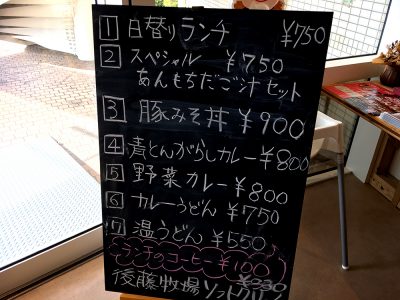 1 日替りランチ ¥750
2 スペシャル ¥750
あんもちだご汁セット
3 豚みそ丼 ¥900
4 青とんがらしカレー ¥800
5 野菜カレー ¥800
6 カレーうどん ¥750
7 温うどん ¥550
ランチのコーヒー ¥100
後藤牧場 ソフトクリーム